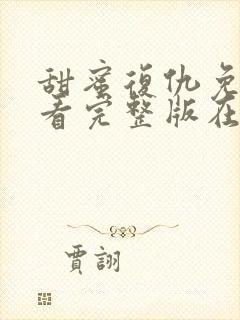 甜蜜復仇免
看完整版在
賈詡